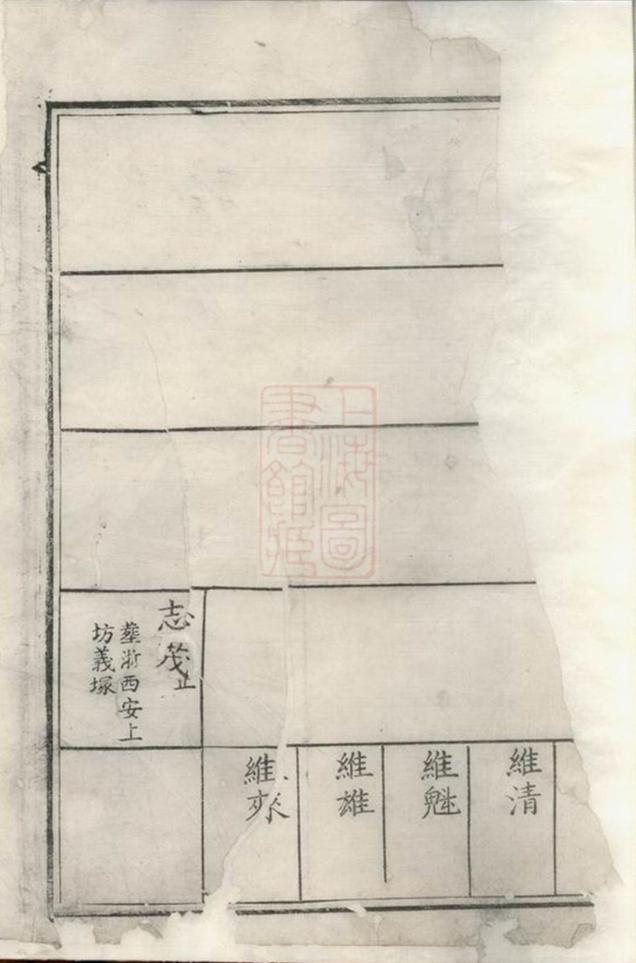 上海圖
書館藏
志茂止
葬浙西安上
坊義塚
維清
維魁
維雄
維